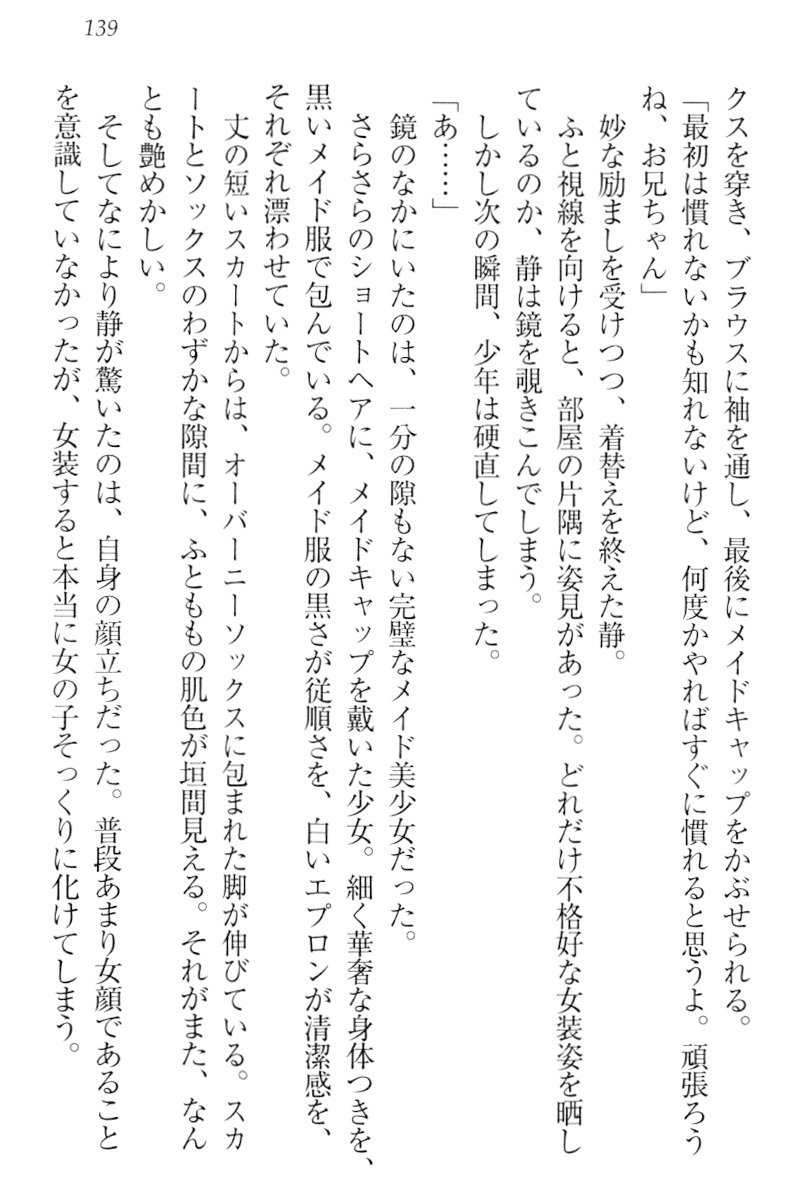 139
クスを穿き、ブラウスに袖を通し、最後にメイドキャップをかぶせられる。
「最初は慣れないかも知れないけど、何度かやればすぐに慣れると思うよ。頑張ろう
ね、お兄ちゃん」
妙な励ましを受けつつ、着替えを終えた静。
ふと視線を向けると、部屋の片隅に姿見があった。どれだけ不格好な女装姿を晒し
ているのか、静は鏡を覗きこんでしまう。
しかし次の瞬間、少年は硬直してしまった。
「あ……」
鏡のなかにいたのは、一分の隙もない完璧なメイド美少女だった。
さらさらのショートヘアに、メイドキャップを戴いた少女。細く華奢な身体つきを、
黒いメイド服で包んでいる。メイド服の黒さが従順さを、白いエプロンが清潔感を、
それぞれ漂わせていた。
丈の短いスカートからは、オーバーニーソックスに包まれた脚が伸びている。スカ
ートとソックスのわずかな隙間に、ふとももの肌色が垣間見える。それがまた、なん
とも艶めかしい。
そしてなにより静が驚いたのは、自身の顔立ちだった。普段あまり女顔であること
を意識していなかったが、女装すると本当に女の子そっくりに化けてしまう。